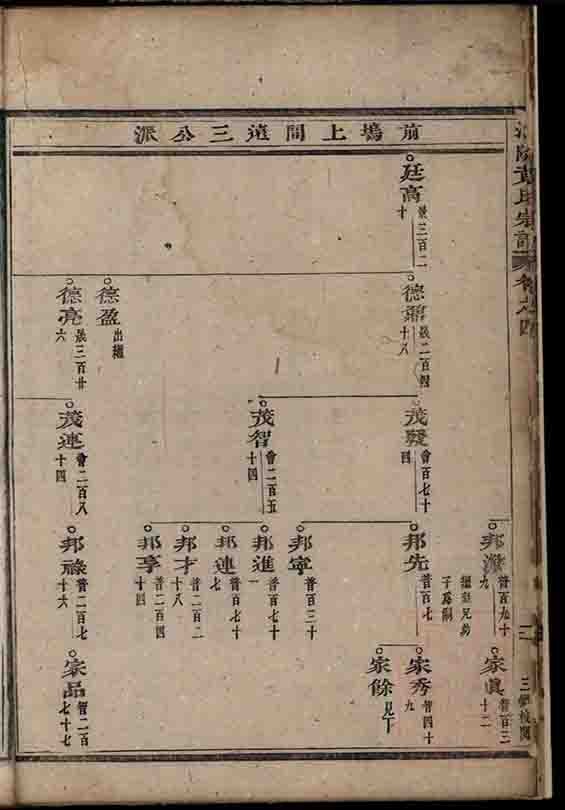 前塢上間進三公派
廷高
張三百二
十
德鼎
張二百四
十八
德盈
出繼
德亮
張三百廿
六
茂發
會百七十
四
茂智
會二百五
十四
茂連
會二百八
十四
邦
普百九十
九
繼梁兄弟
子為嗣
邦先
普百七
邦寧
普百三十
邦進
普百七十
一
邦連
普百七十
七
邦才
普二百二
十八
邦享
普二百四
十四
邦祿
普二百七
十六
家真
智百三
十二
家秀
智四十
九
家餘
見下
家品
智二百
七十七
黃氏宗譜
卷之四
二